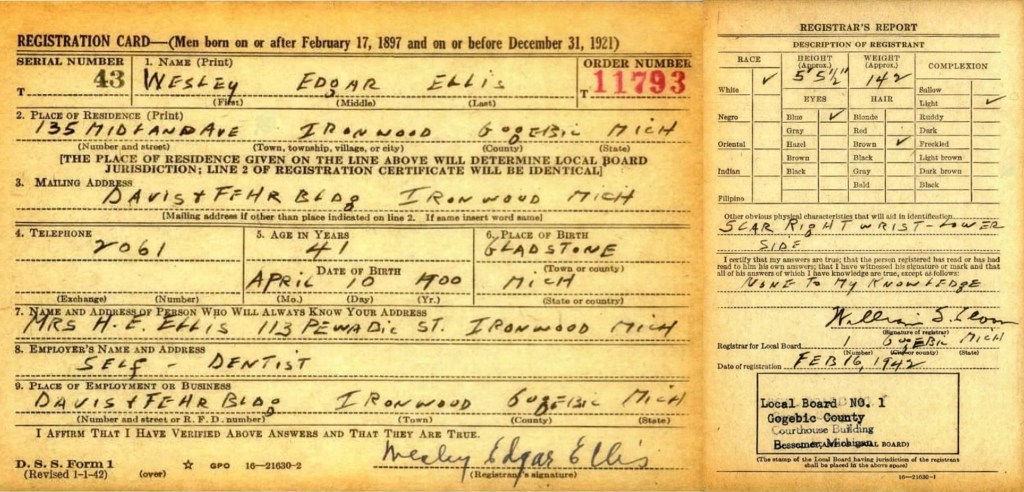 REGISTRATION CARD—(Men born on or after February 17, 1897 and on or before December 31, 1921)
SERIAL NUMBER 1. NAME (Print) ORDER NUMBER
T 43 WESLEY EDGAR ELLIS T 11793
(First) (Middle) (Last)
2. PLACE OF RESIDENCE (Print)
135 MIDLAND AVE IRONWOOD GOGEBIC MICH
(Number and street) (Town, township, village, or city) (County) (State)
[THE PLACE OF RESIDENCE GIVEN ON THE LINE ABOVE WILL DETERMINE LOCAL BOARD
JURISDICTION; LINE 2 OF REGISTRATION CERTIFICATE WILL BE IDENTICAL]
3. MAILING ADDRESS
DAVIS + FEHR BLDG IRONWOOD MICH
[Mailing address if other than place indicated on line 2. If same insert word same]
4. TELEPHONE 5. AGE IN YEARS 6. PLACE OF BIRTH
2061 41 GLADSTONE
DATE OF BIRTH (Town or county)
APRIL 10 1900 MICH
(Exchange) (Number) (Mo.) (Day) (Yr.) (State or county)
7. NAME AND ADDRESS OF PERSON WHO WILL ALWAYS KNOW YOUR ADDRESS
MRS H. E. ELLIS 113 PEWABIC ST. IRONWOOD MICH
8. EMPLOYER'S NAME AND ADDRESS
SELF - DENTIST
9. PLACE OF EMPLOYMENT OR BUSINESS
DAVIS + FEHR BLDG IRONWOOD GOGEBIC MICH
(Number and street or R. F. D. number) (Town) (County) (State)
I AFFIRM THAT I HAVE VERIFIED ABOVE ANSWERS AND THAT THEY ARE TRUE.
D. S. S. Form 1
(Revised 1-1-42) (over) ☆ GPO 16—21630-2
Wesley Edgar Ellis
(Registrant's signature)
REGISTRAR'S REPORT
DESCRIPTION OF REGISTRANT
RACE HEIGHT (Approx.) WEIGHT (Approx.) COMPLEXION
✓ 5' 5 1/2" 142
White Sallow
EYES HAIR Light ✓
Negro Blue ✓ Blonde Ruddy
Gray Red Dark
Oriental Hazel Brown ✓ Freckled
Brown Black Light brown
Indian Black Gray Dark brown
Bald Black
Filipino
Other obvious physical characteristics that will aid in identification
SCAR RIGHT WRIST - LOWER
SIDE
I certify that my answers are true; that the person registered has read or has had
read to him his own answers; that I have witnessed his signature or mark and that
all of his answers of which I have knowledge are true, except as follows:
NONE TO MY KNOWLEDGE
William S.
(Signature of registrar)
Registrar for Local Board 1 GOGEBIC MICH
(Number) (City or county) (State)
Date of registration FEB 16, 1942
Local Board NO. 1
Gogebic County
Courthouse Building
Bessemer, Michigan
LOCAL BOARD)
(The stamp of the Local Board having jurisdiction of the registrant
shall be placed in the above space)
16—21630-1